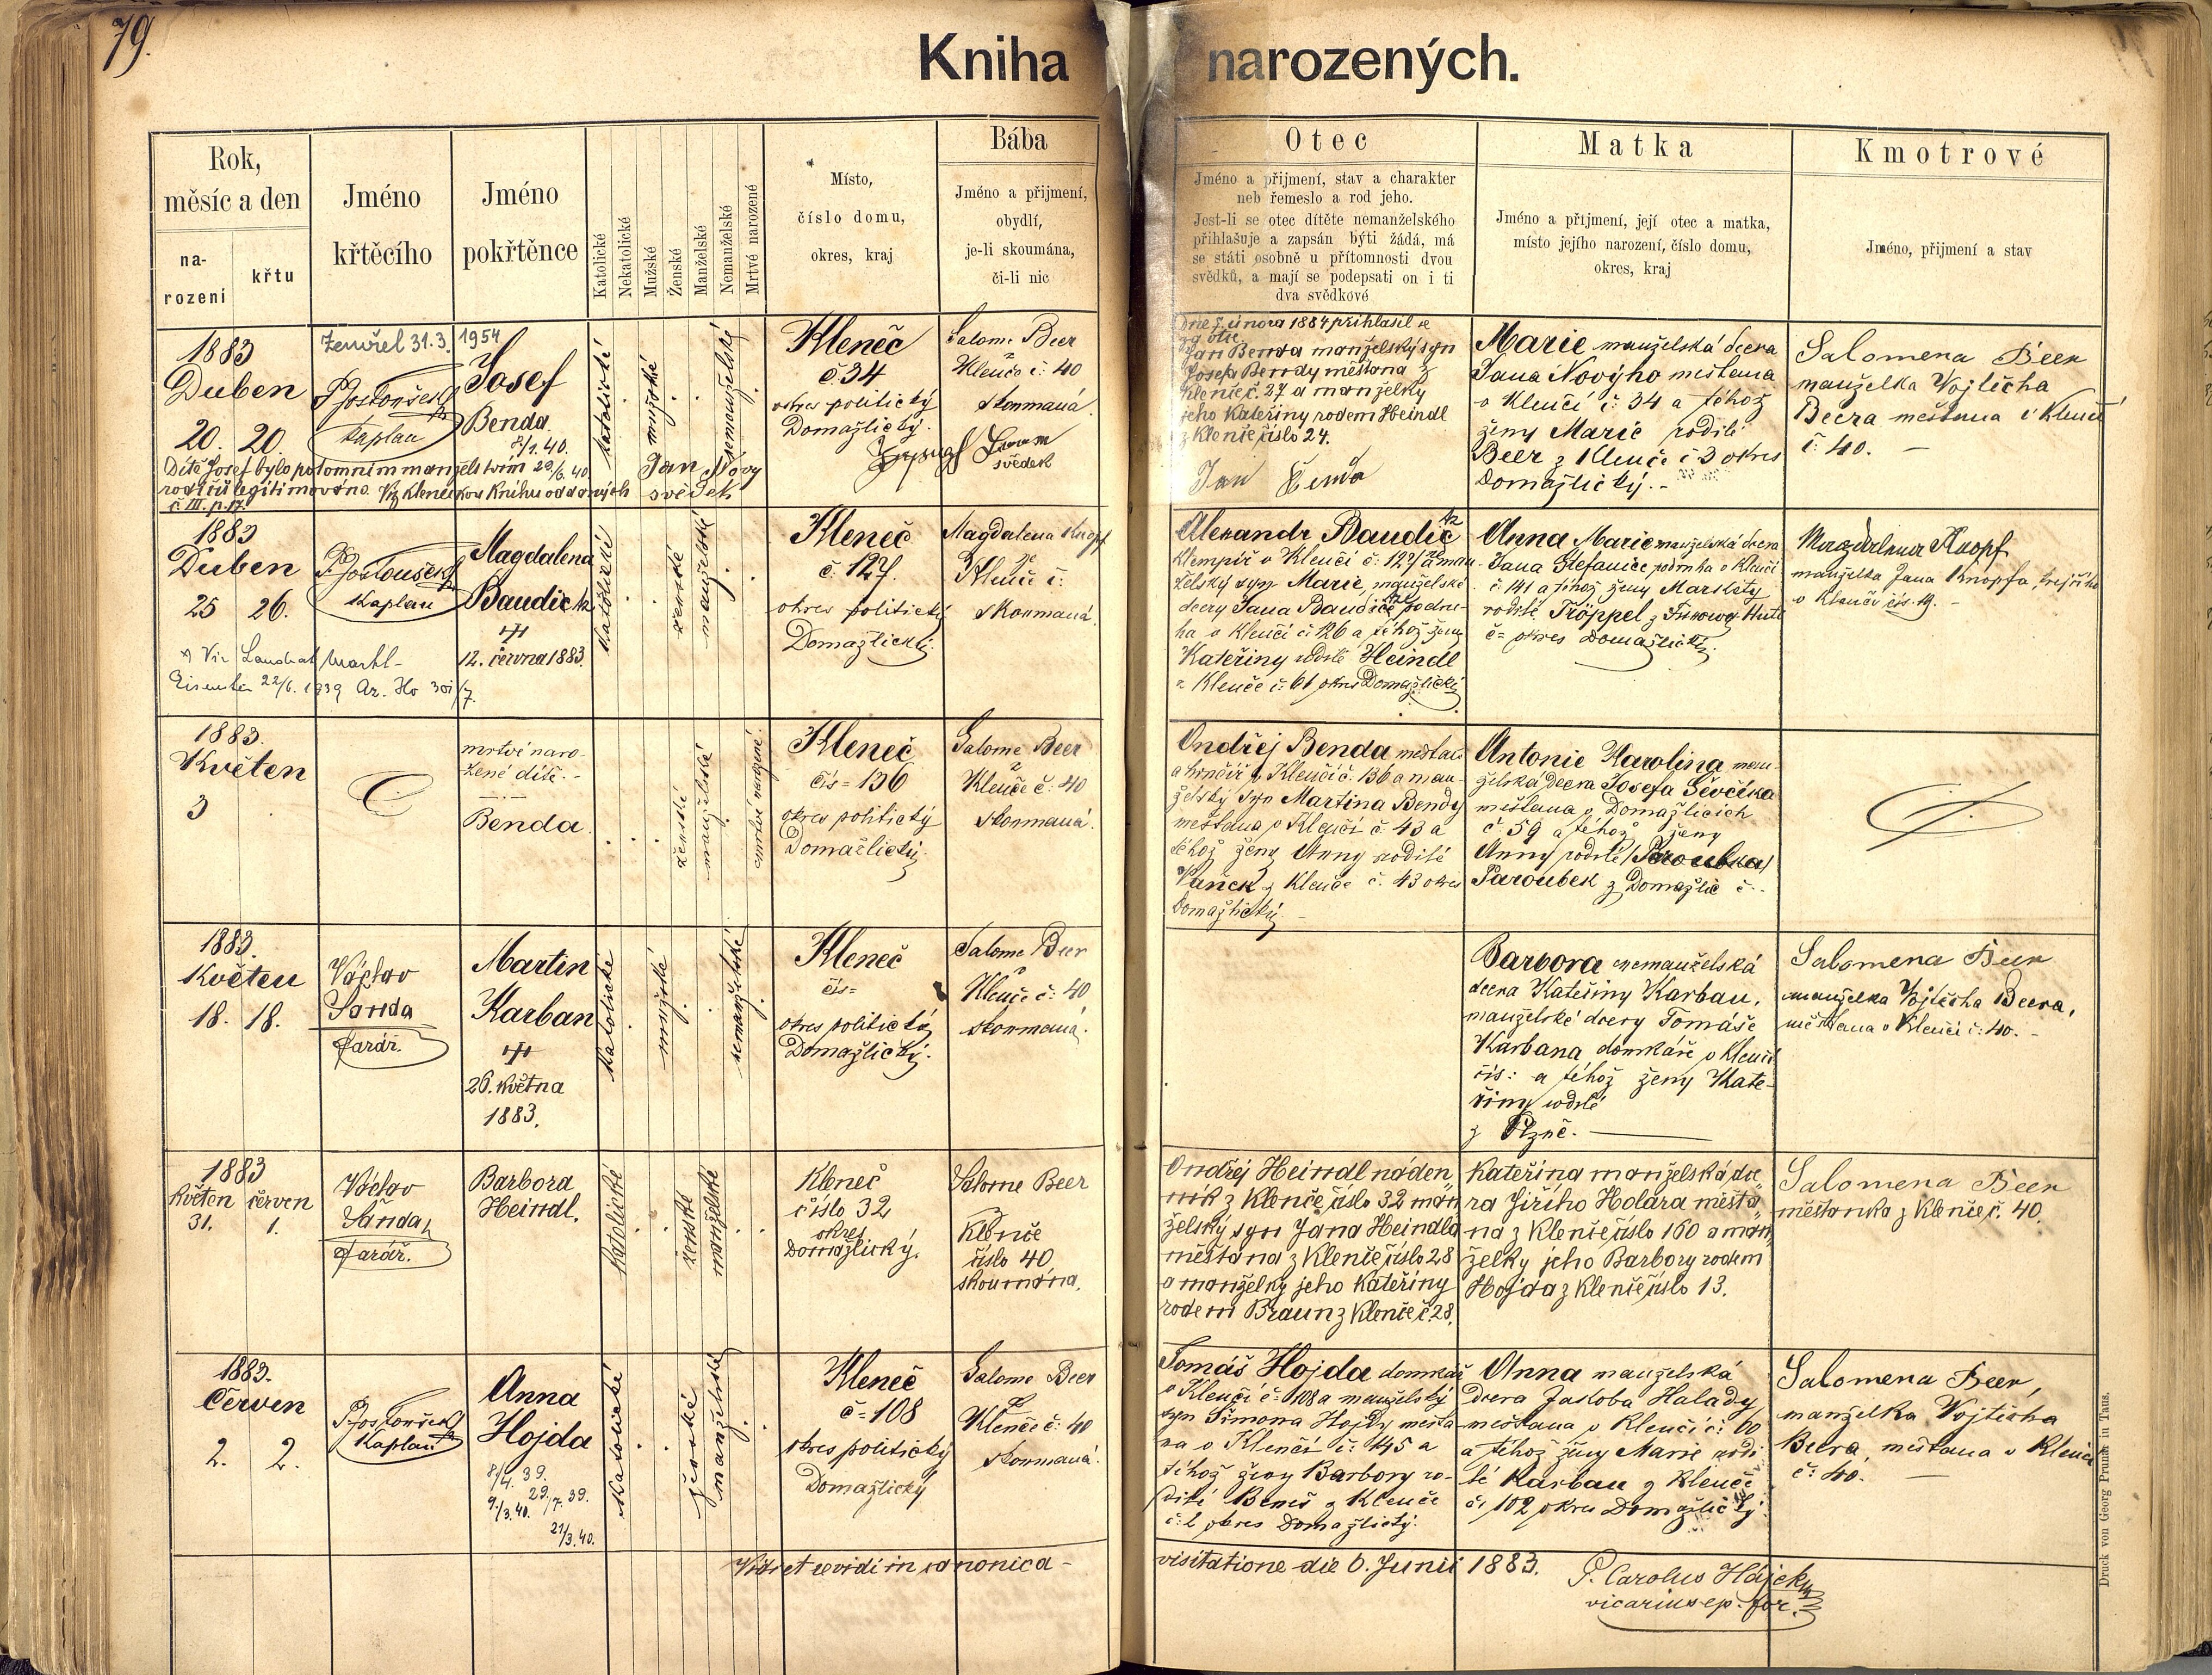 79.
Kniha narozených.
Rok,
měsíc a den
na-
rození
křtu
Jméno
křtěcího
Jméno
pokřtěnce
Katolické
Nekatolické
Mužské
Ženské
Manželské
Nemanželské
Mrtvé narozené
Místo,
číslo domu,
okres, kraj
Bába
Jméno a přijmení,
obydlí,
je-li skoumána,
či-li nic
Otec
Jméno a přijmení, stav a charakter
neb řemeslo a rod jeho.
Jest-li se otec dítěte nemanželského
přihlašuje a zapsán býti žádá, má
se státi osobně u přítomnosti dvou
svědků, a mají se podepsati on i ti
dva svědkové
Matka
Jméno a přijmení, její otec a matka,
místo jejího narození, číslo domu,
okres, kraj
Kmotrové
Jméno, přijmení a stav
1883
Duben
20. 20.
Zemřel 31.3. 1954
Kaplan
Josef
Benda.
8/1.40.
katolické
mužské
nemanželský
Kleneč
č. 34
okres politický
Domažlický.
Salome Beer
z
Klenče č: 40
skoumaná.
svědek
Dítě Josef bylo potomním manželstvím 29/6.40.
rodičů legitimováno. Viz Klenečskou knihu oddaných
č. III. p. 17.
Jan Nový
svědek
Dne 7. února 1884 přihlásil se
za otce
Jan Benda manželský syn
Josefa Bendy měšťana z
Klenče č. 27 a manželky
jeho Kateřiny rodem Heindl
z Klenče číslo 24.
Jan Benda
Marie manželská dcera
Jana Nového měšťana
v Klenčí č: 34 a téhož
ženy Marie rodilé
Beer z Klenče č 3 okres
Domažlický.-
Salomena Beer
manželka Vojtěcha
Beera měšťana v Klenčí
č: 40. -
1883
Duben
25 26.
Kaplan
Magdalena
Baudisch
12. června 1883.
katolické
ženské
manželské
Kleneč
č. 127.
okres politický
Domažlický.
Magdalena Knopf
z
Klenče č:
skoumaná.
22/6. 1939
Alexandr Baudič
klempíř v Klenčí č: 127 a man-
želský syn Marie, manželské
dcery Jana Baudiče podru-
ha v Klenčí č: 126 a téhož ženy
Kateřiny rodilé Heindl
z Klenče č: 61 okres Domažlický
Anna Marie manželská dcera
Jana Stefanice podruha v Klenčí
č. 141 a téhož ženy Markéty
rodilé Tröppel z
č= okres Domažlický.
Magdalena Knopf
manželka Jana Knopfa,
v Klenčí čís. 19. -
1883.
Květen
3
mrtvě naro-
zené dítě.-
Benda.
ženské
manželské
mrtvě narozené.
Kleneč
čís= 136
okres politický
Domažlický.
Salome Beer
z
Klenče č: 40
skoumaná.
Ondřej Benda měšťan
a hrnčíř v Klenčí č. 136 a man-
želský syn Martina Bendy
měšťana v Klenčí č. 43 a
téhož ženy Anny rodilé
Vaněk z Klenče č. 43 okres
Domažlický. -
Antonie Karolina man-
želská dcera Josefa Ševčíka
měšťana v Domažlicích
č. 59 a téhož ženy
Anny rodilé (Paroubka)
Paroubek z Domažlic č.-
1883.
Květen
18. 18.
Václav
Šanda
farář.
Martin
Karban
26. května
1883.
katolické
mužské
nemanželské
Kleneč
čís=
okres politický
Domažlický.
Salome Beer
z
Klenče č: 40
skoumaná.
Barbora nemanželská
dcera Kateřiny Karban,
manželské dcery Tomáše
Karbana domkáře v Klenčí
čís: a téhož ženy Kate-
řiny rodilé
z Plzně.
Salomena Beer
manželka Vojtěcha Beera,
měšťana v Klenčí č: 40. -
1883
květen červen
31. 1.
Václav
Šanda,
farář.
Barbora
Heindl.
katolické
ženské
manželské
Kleneč
číslo 32
okres
Domažlický.
Salome Beer
z
Klenče
číslo 40
skoumána.
Ondřej Heindl náden„
ník z Klenče číslo 32 man„
želský syn Jana Heindla
měšťana z Klenče číslo 28
a manželky jeho Kateřiny
rodem Braun z Klenče č. 28.
Kateřina manželská dce„
ra Jiřího Holára měšťa„
na z Klenče číslo 160 a man„
želky jeho Barbory rodem
Hojda z Klenče číslo 13.
Salomena Beer
měšťanka z Klenče č. 40.
1883.
Červen
2. 2.
Kaplan
Anna
Hojda
8/4. 39.
29./7. 39.
9./3.40.
21/3.40.
katolické
ženské
manželské
Kleneč
č= 108
okres politický
Domažlický
Salome Beer
z
Klenče č: 40
skoumaná.
Tomáš Hojda domkář
v Klenčí č: 108 a manželský
syn Šimona Hojdy měšťa
na v Klenčí č: 145 a
téhož ženy Barbory ro-
dilé Beneš z Klenče
č: 2 okres Domažlický.
Anna manželská
dcera Jakoba Halady
měšťana v Klenčí č: 60
a téhož ženy Marie rodi
lé Karban z Klenče
č, 102 okres Domažlický.
Salomena Beer,
manželka Vojtěcha
Beera, měšťana v Klenčí
č: 40. -
Vidi et revidi in canonica - visitatione die 6. Junii 1883.
P. Carolus Hájek
vicarius ep. for.
Druck von Georg Prunar in Taus.